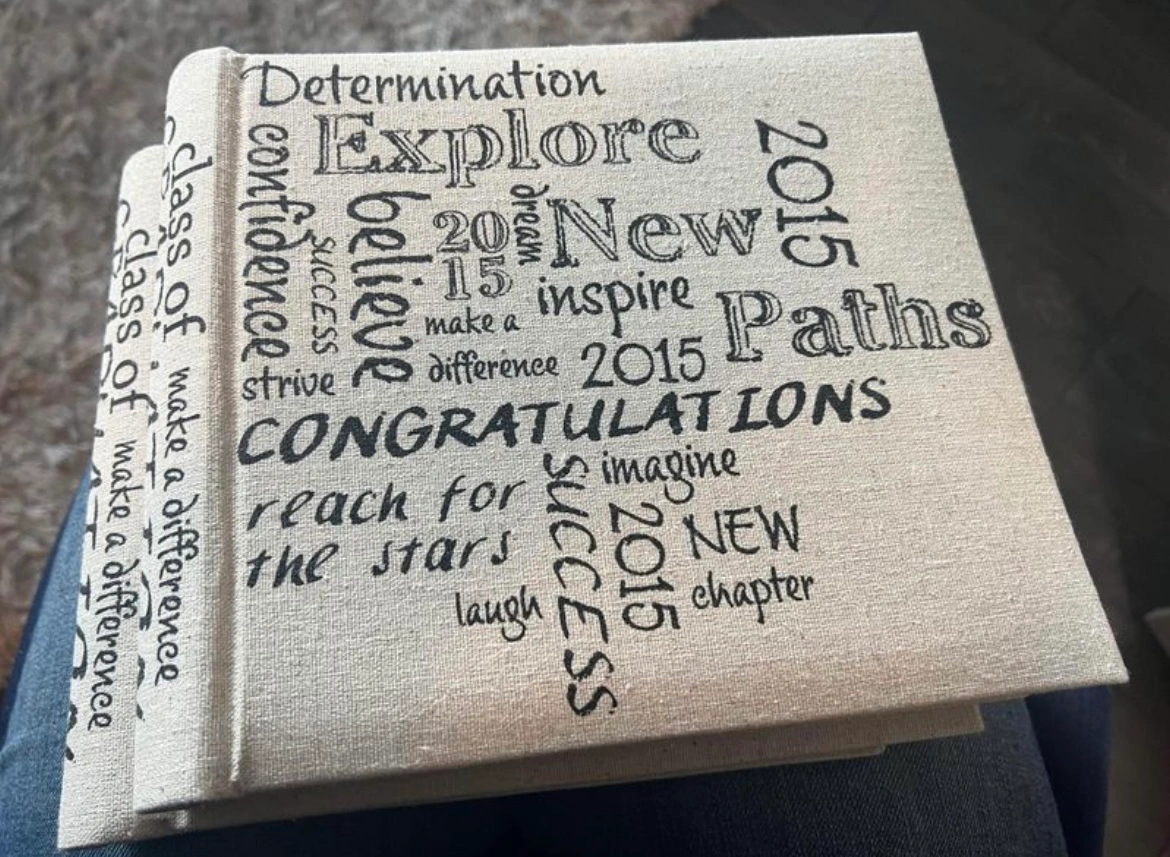 Determination
Explore
2015
confidence
SUCCESS
believe
20
15
dream
New
inspire
Paths
make a
difference
2015
strive
CONGRATULATIONS
reach for
the stars
SUCCESS
imagine
2015
NEW
chapter
laugh
class of
make a difference
class of
make a difference